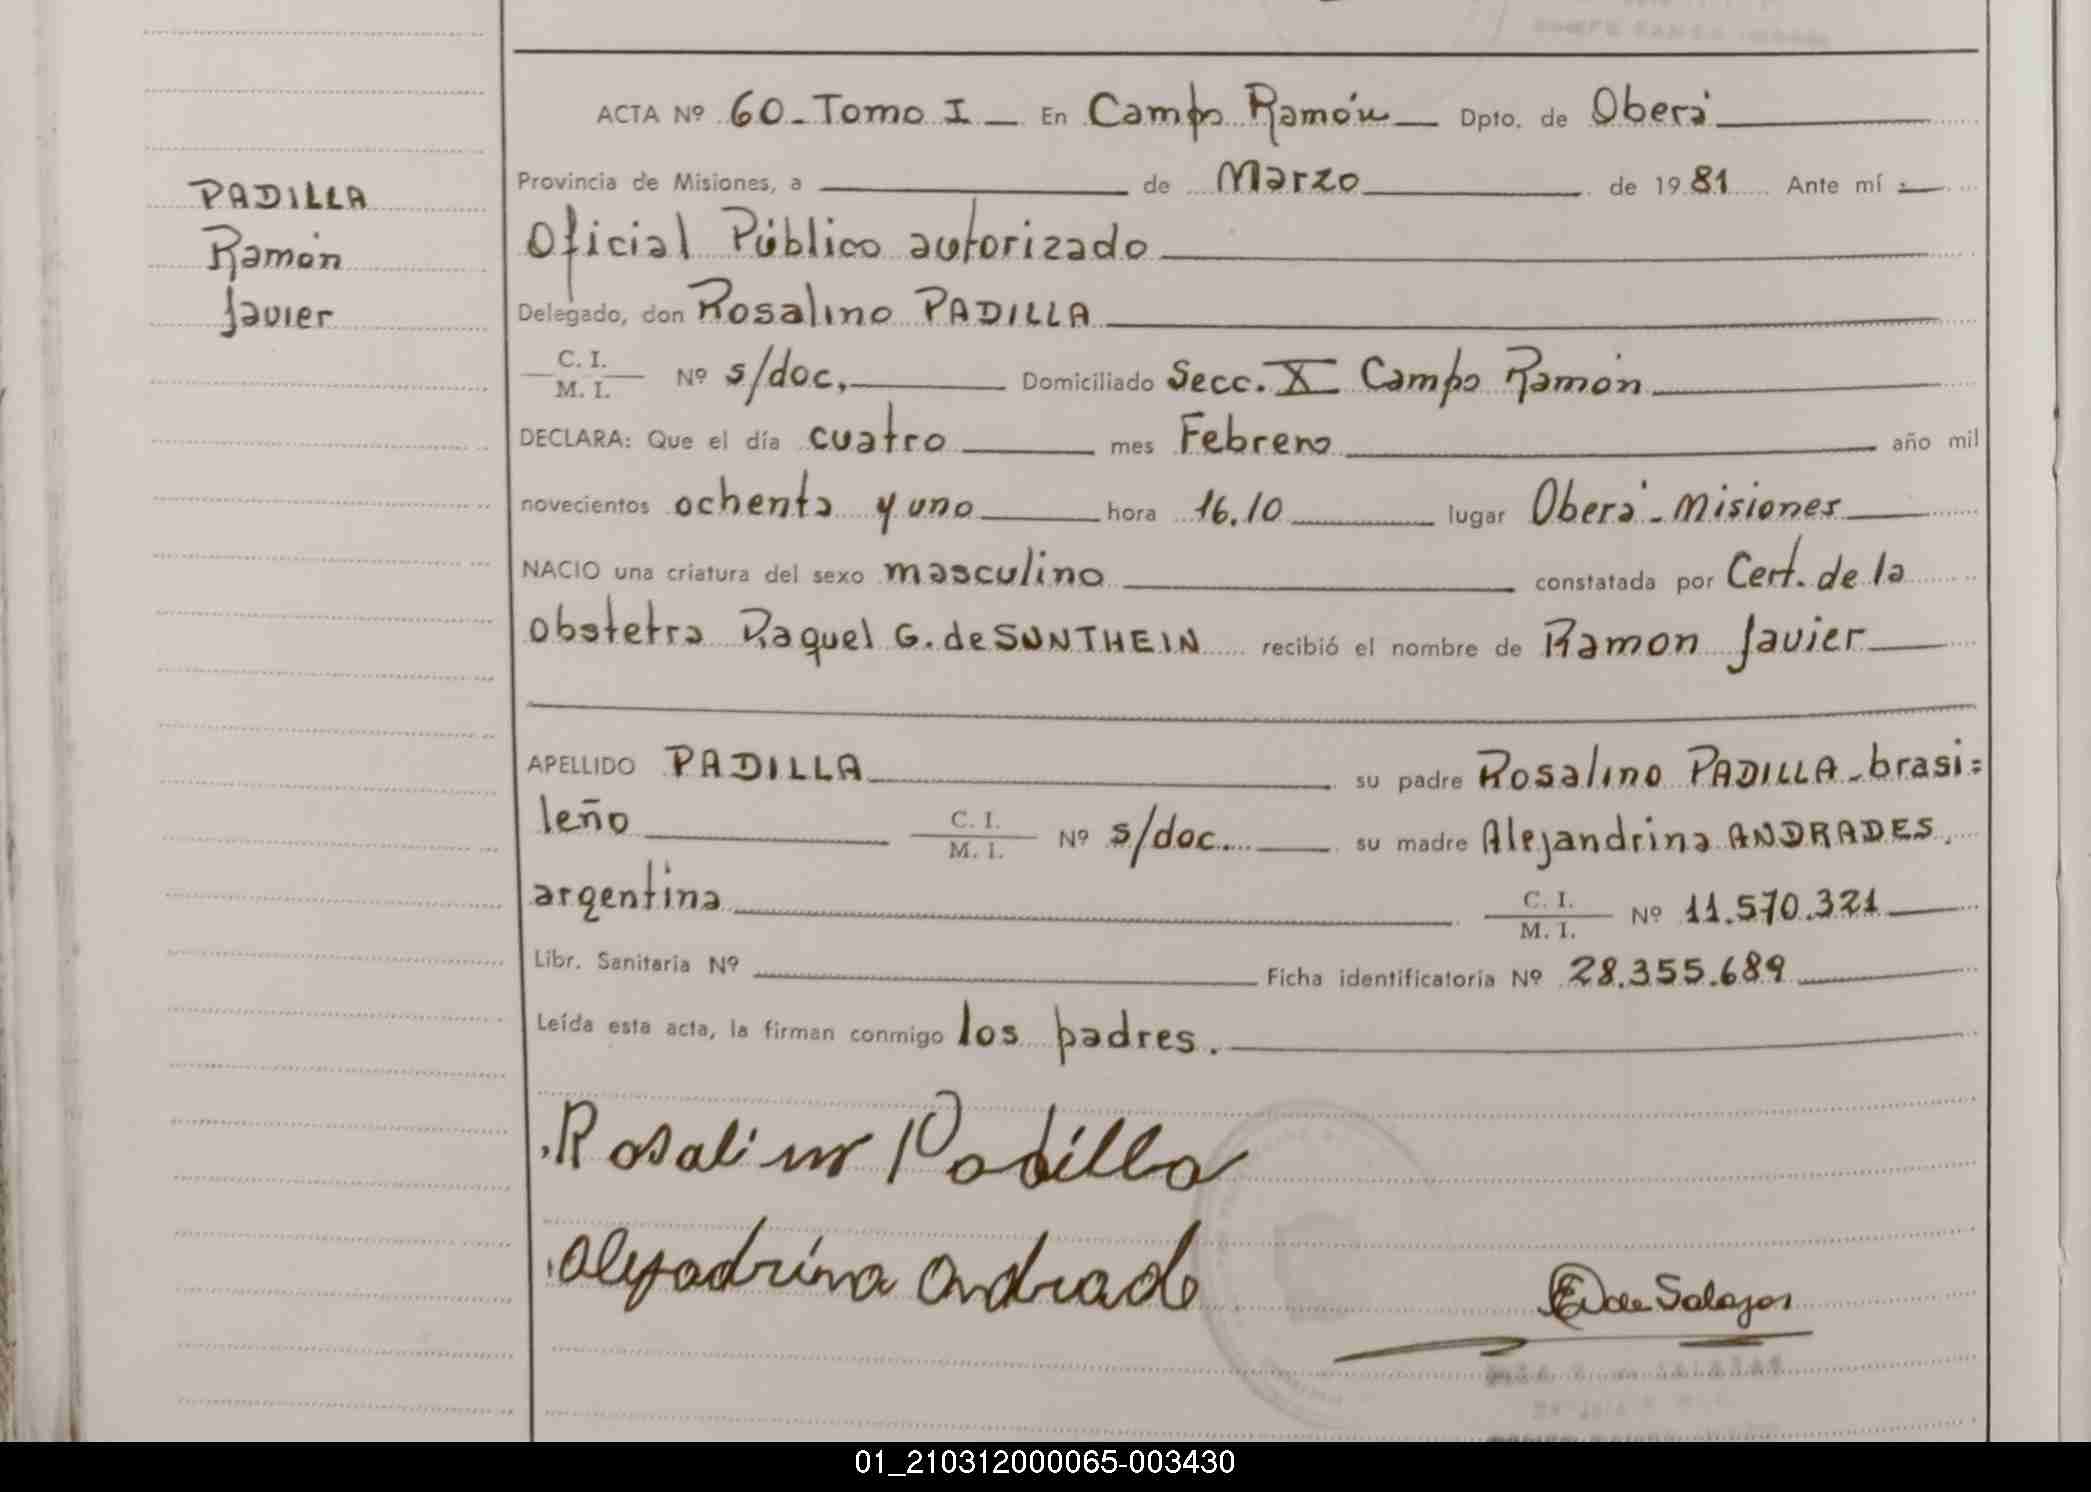 ACTA Nº 60 - Tomo I - En Campo Ramón - Dpto. de Oberá
Provincia de Misiones, a de Marzo de 1981 Ante mí :
PADILLA
Ramón
Javier
Oficial Público autorizado
Delegado, don Rosalino PADILLA
C. I.
M. I. Nº s/doc, Domiciliado Secc. X Campo Ramón
DECLARA: Que el día cuatro mes Febrero año mil
novecientos ochenta y uno hora 16.10 lugar Oberá - Misiones
NACIO una criatura del sexo masculino constatada por Cert. de la
Obstetra Raquel G. de SUNTHEIN recibió el nombre de Ramon Javier
APELLIDO PADILLA su padre Rosalino PADILLA - brasi=
leño C. I.
M. I. Nº s/doc. su madre Alejandrina ANDRADES,
argentina C. I.
M. I. Nº 11.570.321
Libr. Sanitaria Nº Ficha identificatoria Nº 28.355.689
Leída esta acta, la firman conmigo los padres.
Rosalino Padilla
Alejadrina Andrade
de Salazar
01_210312000065-003430